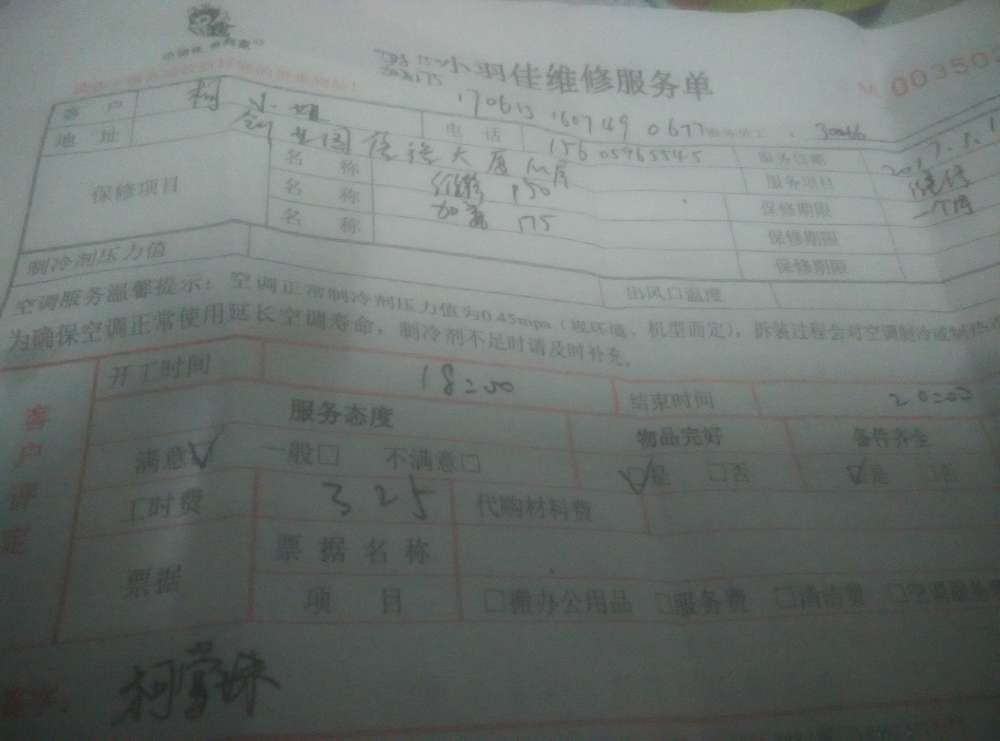 小羽佳维修服务单
M 003503
170613 160749 0677
客户 柯小姐 电话 15605965545 服务日期 2017.7.1
地址 服务项目 维修
保修项目 名称 维修 150 保修期限 一个月
名称 加氟 175 保修期限
名称 保修期限
制冷剂压力值 出风口温度
空调服务温馨提示：空调正常制冷剂压力值为0.45mpa（视环境、机型而定），拆装过程会对空调制冷或制热
为确保空调正常使用延长空调寿命，制冷剂不足时请及时补充。
客户评定
开工时间 18:00 结束时间 20:00
服务态度 物品完好 备件齐全
满意☑ 一般□ 不满意□ ☑是 □否 ☑是 □否
工时费 325 代购材料费
票据 票据名称
项目 □办公用品 □服务费 □清洁费 □空调服务